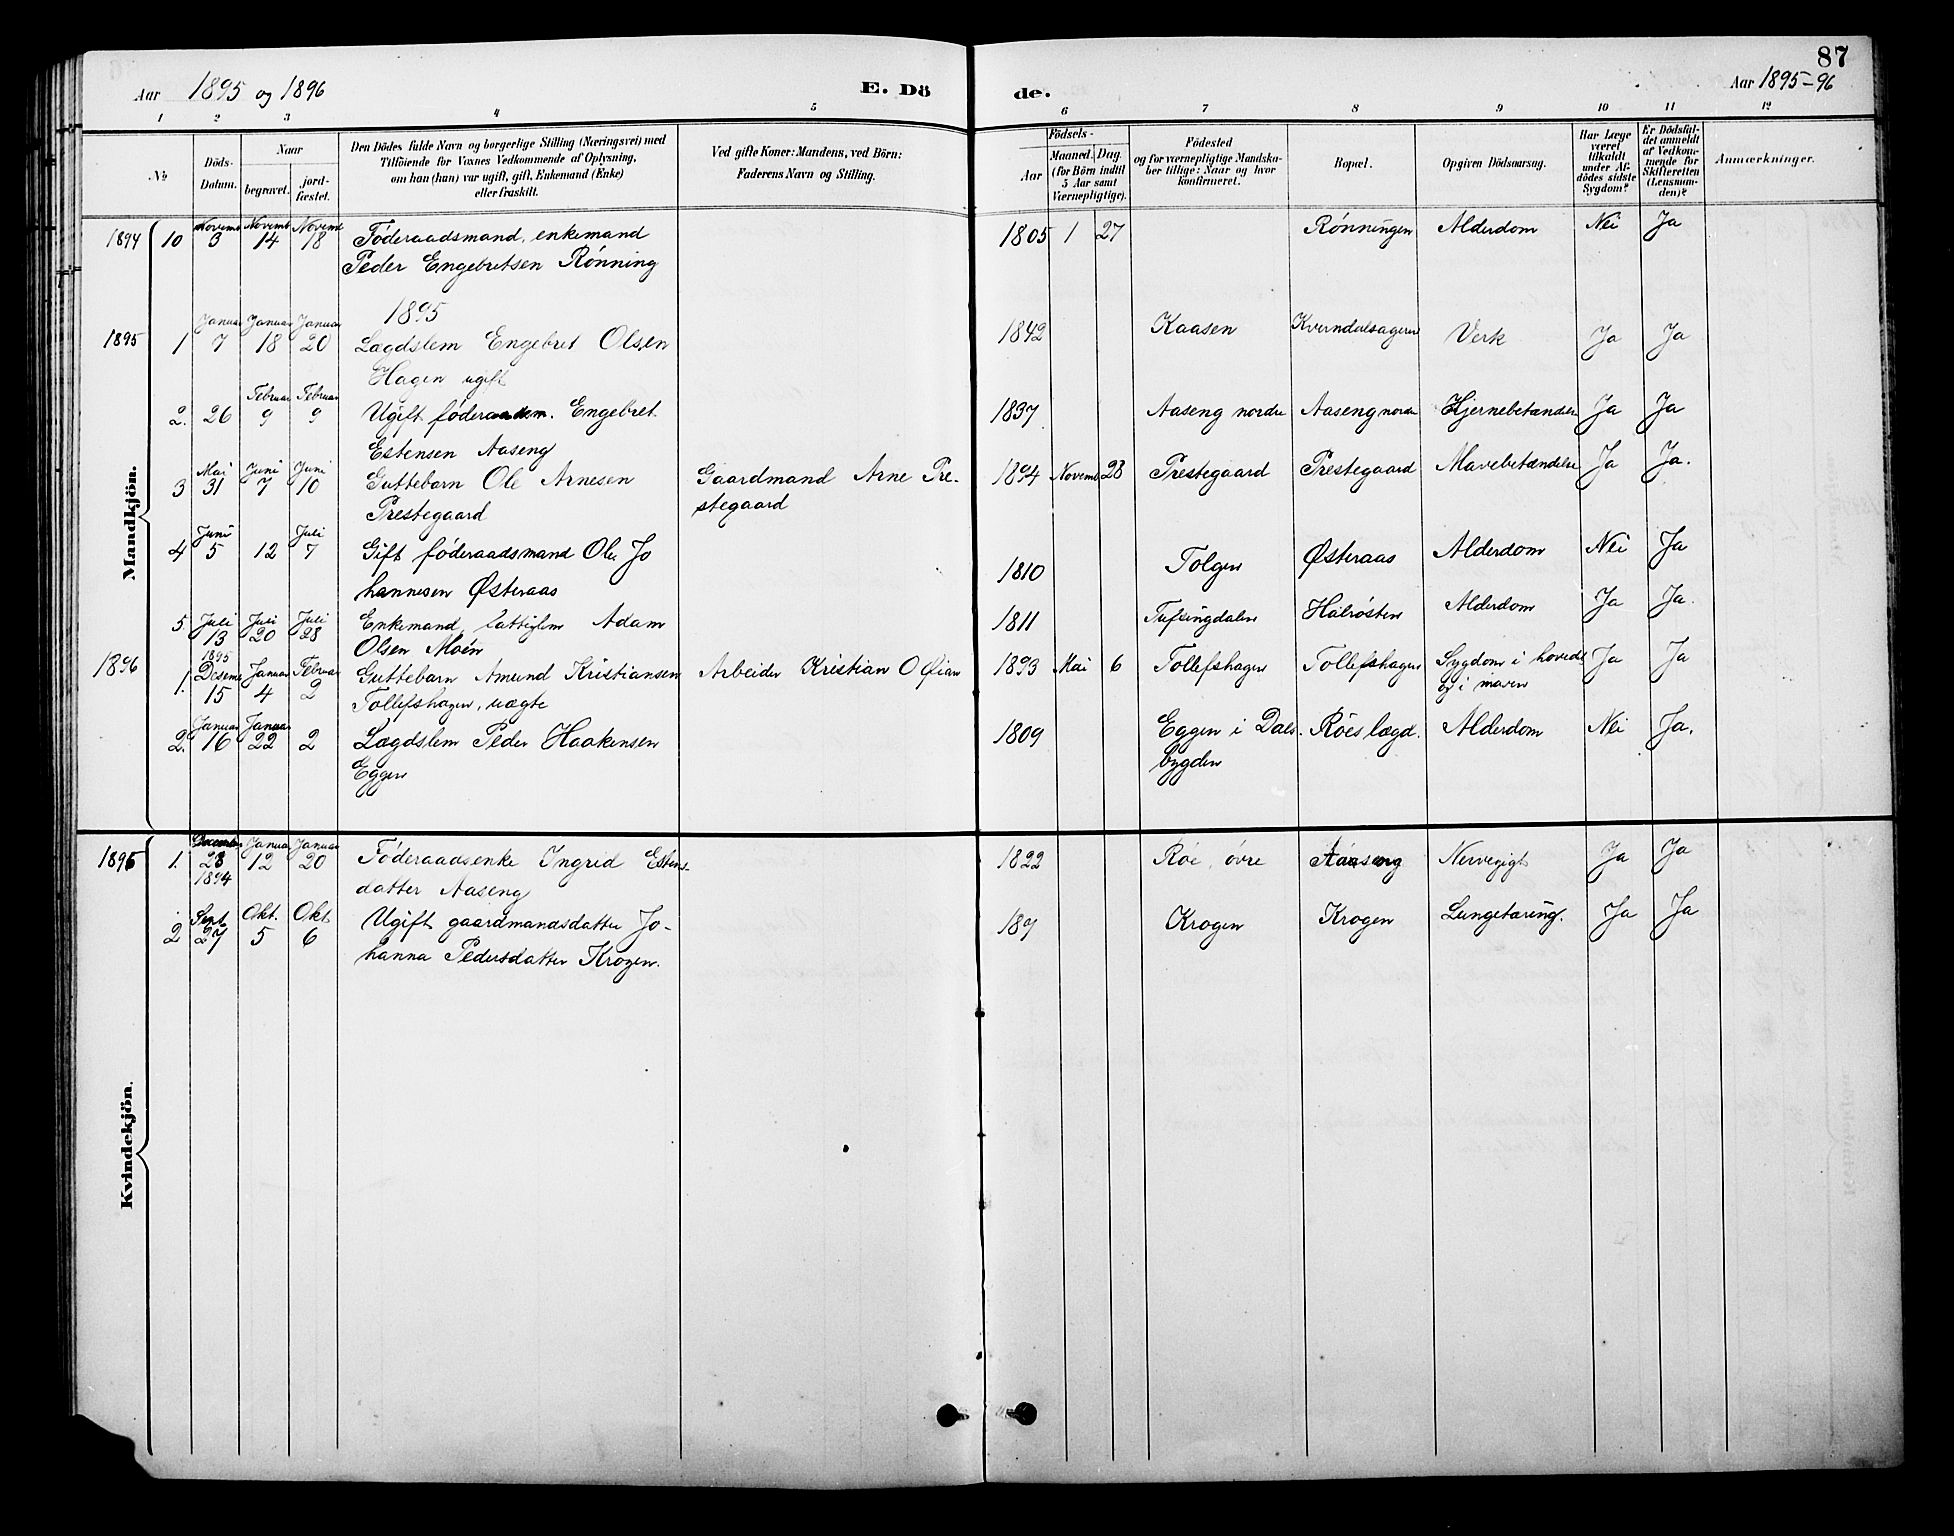 87
Aar 1895 og 1896
E. Dö
de.
Aar 1895-96
1 2 3 4 5 6 7 8 9 10 11 12
No
Döds-
Datum.
Naar
begravet.
jord-
fæstet.
Den Dödes fulde Navn og borgerlige Stilling (Næringsvei) med
Tilföiende for Voxnes Vedkommende af Oplysning,
om han (hun) var ugift, gift, Enkemand (Enke)
eller fraskilt.
Ved gifte Koner: Mandens, ved Börn:
Faderens Navn og Stilling.
Födsels-
Aar
Maaned. Dag.
(for Börn indtil
5 Aar samt
Værnepligtige).
Födested
og for værnepligtige Mandska-
ber tillige: Naar og hvor
konfirmeret.
Bopæl.
Opgiven Dödsaarsag.
Har Læge
været
tilkaldt
under Af-
dödes sidste
Sygdom?
Er Dödsfal-
det anmeldt
af Vedkom-
mende for
Skifteretten
(Lensman-
den)?
Anmærkninger.
Mandkjön.
1894 10 Novemb 3 Novemb 14 Novemb 18 Föderaadsmand, enkemand 1805 1 27 Rönningen Alderdom Nei Ja
Peder Engebretsen Rönning
1895
1895 1 Januar 7 Januar 18 Januar 20 Lægdslem Engebret Olsen 1842 Kaasen Kverndalsageren Verk Ja Ja
Hagen ugift
2. 26 Februar 9 Februar 9 Ugift föderaadsm. Engebret 1837 Aaseng nordre Aaseng nordre Hjernebetændelse Ja Ja
Estensen Aaseng
3 Mai 31 Juni 7 Juni 10 Guttebarn Ole Arnesen Gaardmand Arne Pre- 1894 Novemb 28 Prestegaard Prestegaard Mavebetændelse Ja Ja.
Prestegaard stegaard
4 Juni 5 12 Juli 7 Gift föderaadsmand Ole Jo 1810 Tolgen Østeraas Alderdom Nei Ja
hannesen Østeraas
5 Juli 13 Juli 20 Juli 28 Enkemand, fattiglem Adam 1811 Tufsingdalen Halrösten Alderdom Ja Ja.
Olsen Moen
1896 1. 1895 Desemb 15 Januar 4 Februar 2 Guttebarn Amund Kristiansen Arbeider Kristian O Øian 1893 Mai 6 Tollefshagen Tollefshagen Sygdom i hovedet Ja Ja
Tollefshagen, uægte og i maven
2. Januar 16 Januar 22 2 Lægdslem Peder Haakensen 1809 Eggen i Dals- Röeslægd. Alderdom Nei Ja.
Eggen bygden
Kvindekjön.
1895 1. December 28 1894 Januar 12 Januar 20 Föderaadsenke Ingrid Estens- 1822 Röe, övre Aaseng Nervegigt Ja Ja
datter Aaseng
2 Sept. 27 Okt. 5 Okt 6 Ugift gaardmandsdatter Jo- 189 Krogen Krogen Lungetæring. Ja Ja
hanna Pedersdatter Krogen.